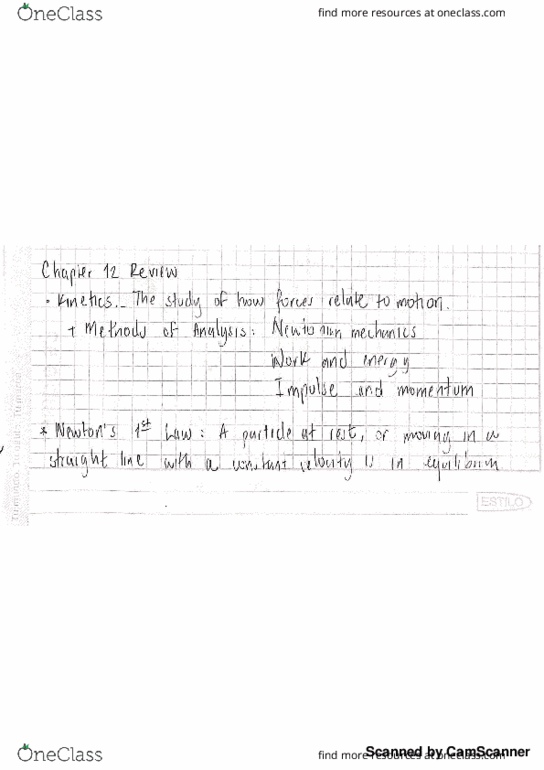 OneClass
find more resources at oneclass.com
Chapter 12 Review
• Kinetics._ The study of how forces relate to motion.
+ Methods of Analysis: Newtonian mechanics
Work and energy
Impulse and momentum
* Newton's 1st Law: A particle at rest, or moving in a
straight line with a constant velocity is in equilibrium
ESTILO
OneClass
find more resources at oneclass.com
Scanned by CamScanner